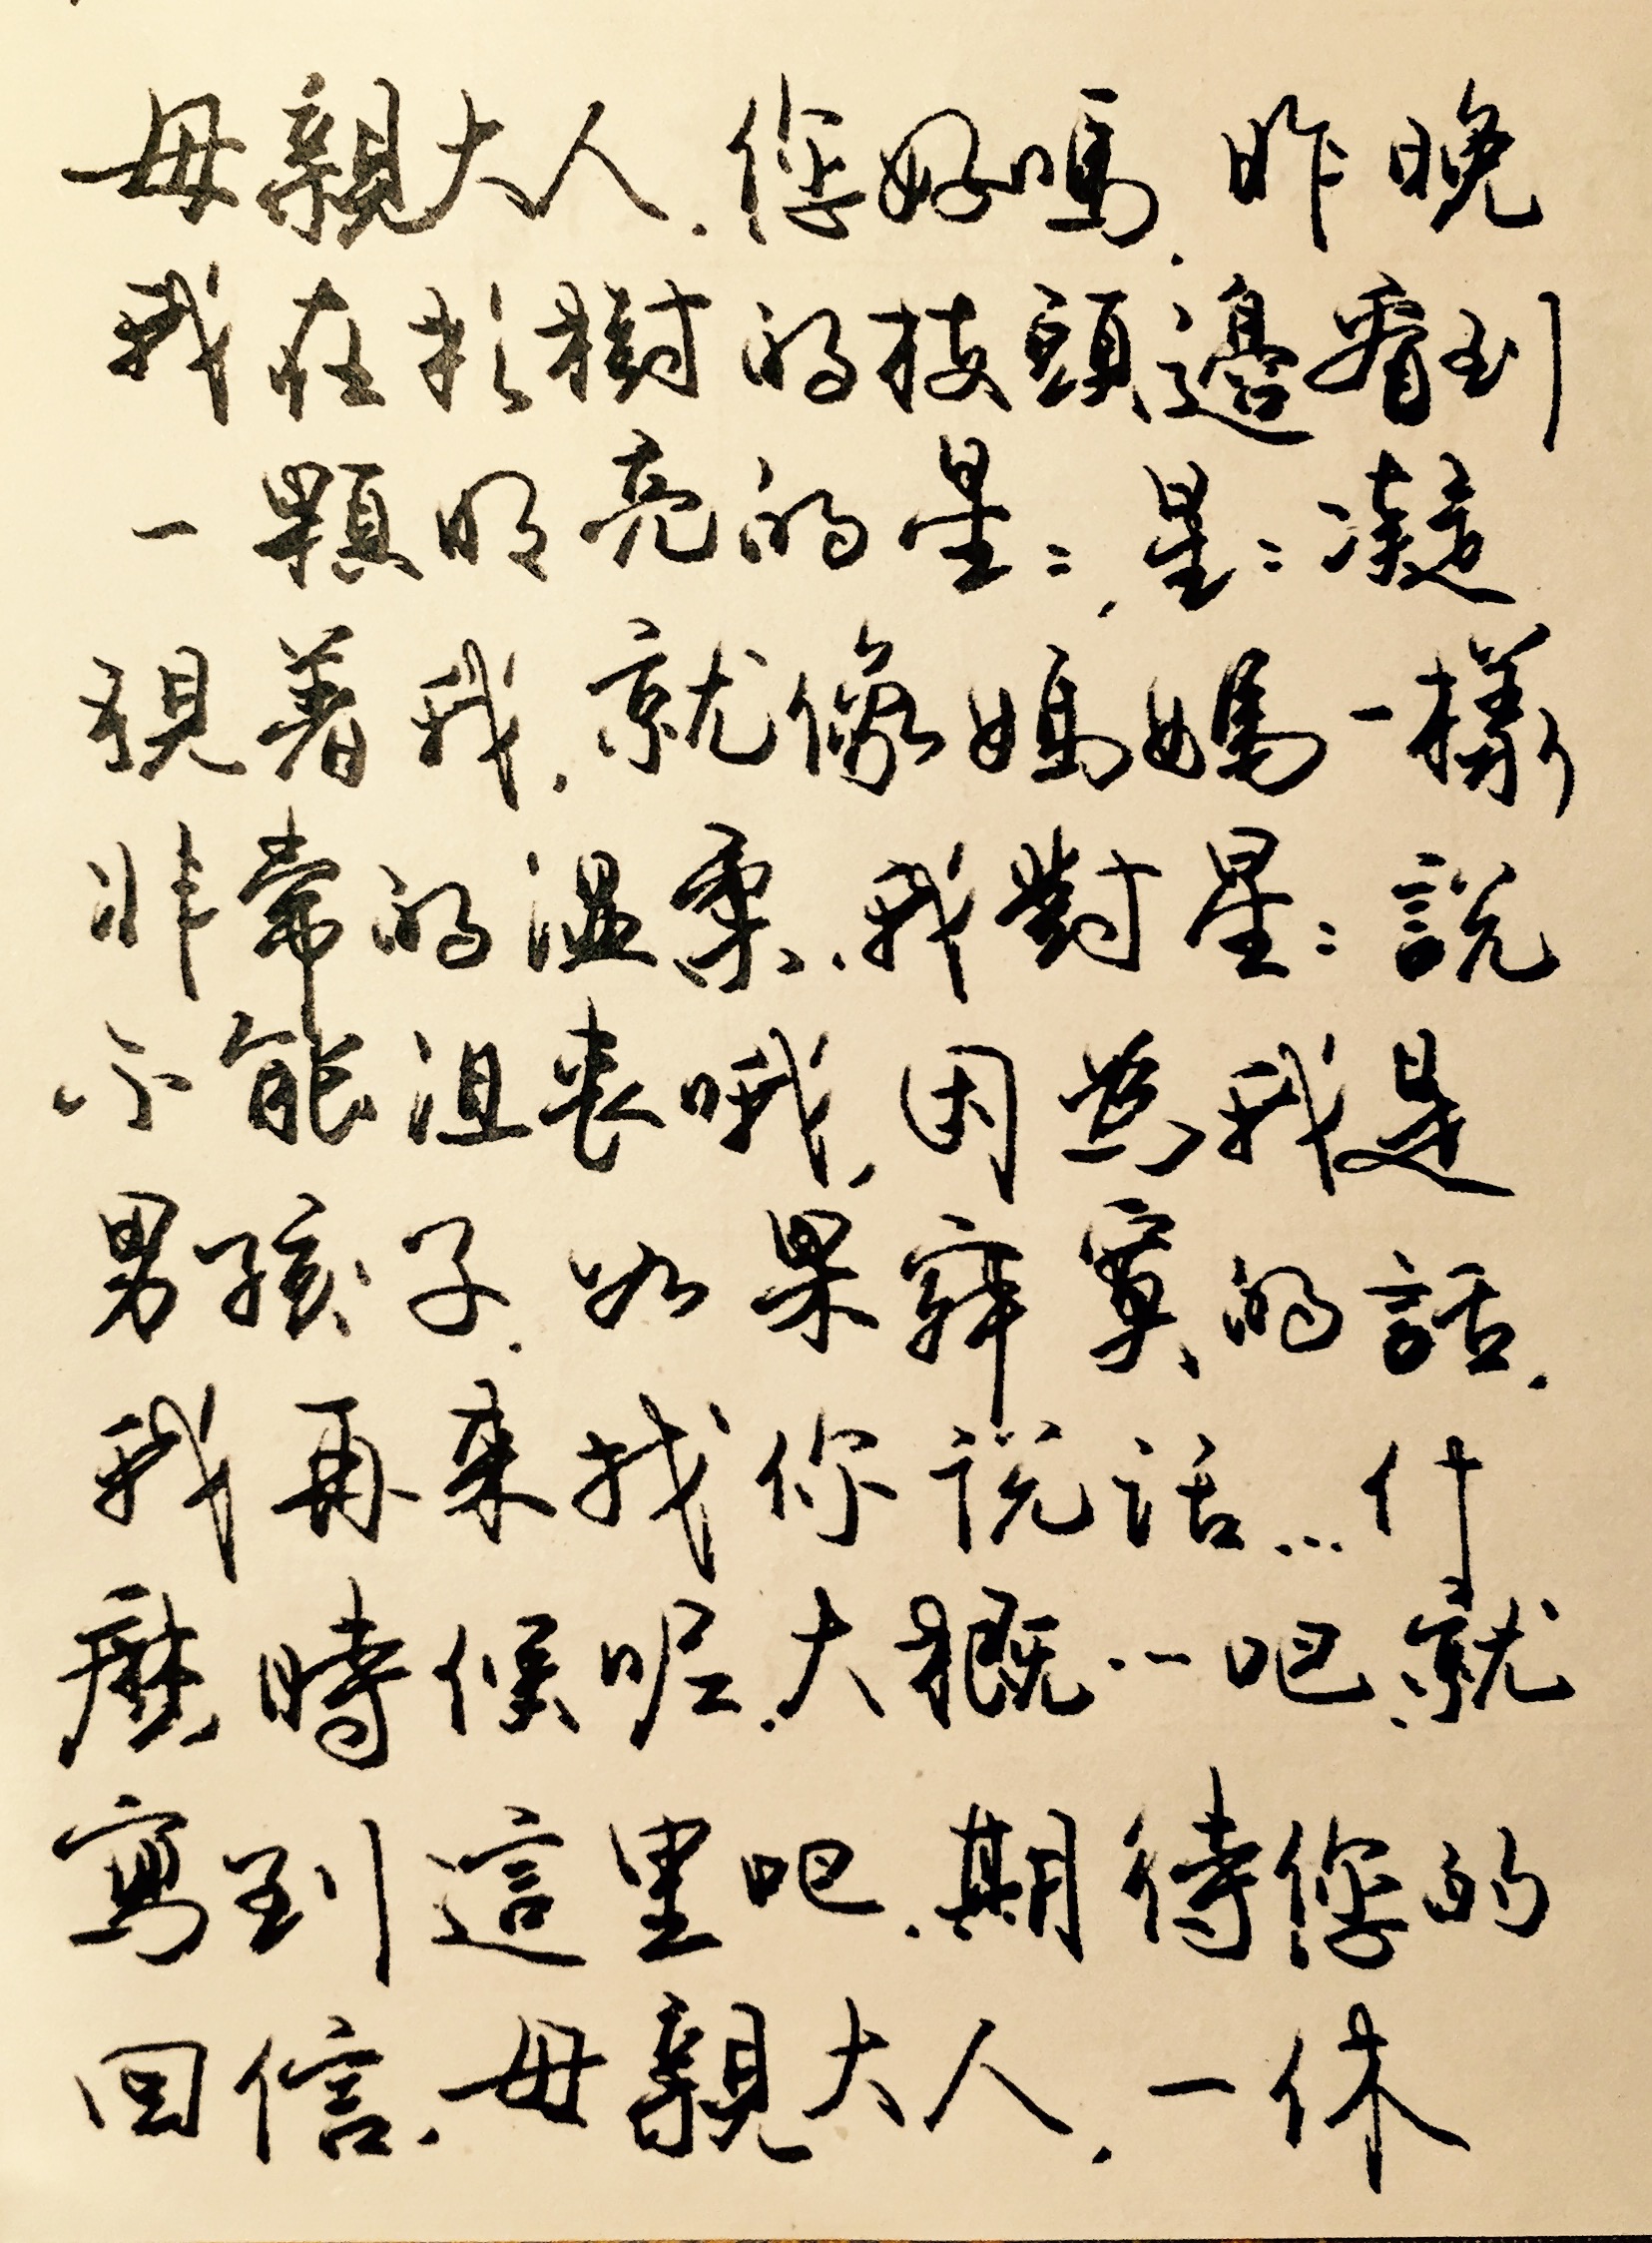 母親大人.您好嗎.昨晚
我在杉樹的枝頭邊看到
一顆明亮的星：,星：凝
視着我.就像媽媽一樣
非常的溫柔.我對星：說
不能沮喪哦,因為我是
男孩子.如果寂寞的話.
我再來找你说话…什
麼時候呢.大概··一吧.就
寫到這里吧.期待您的
回信.母親大人.一休